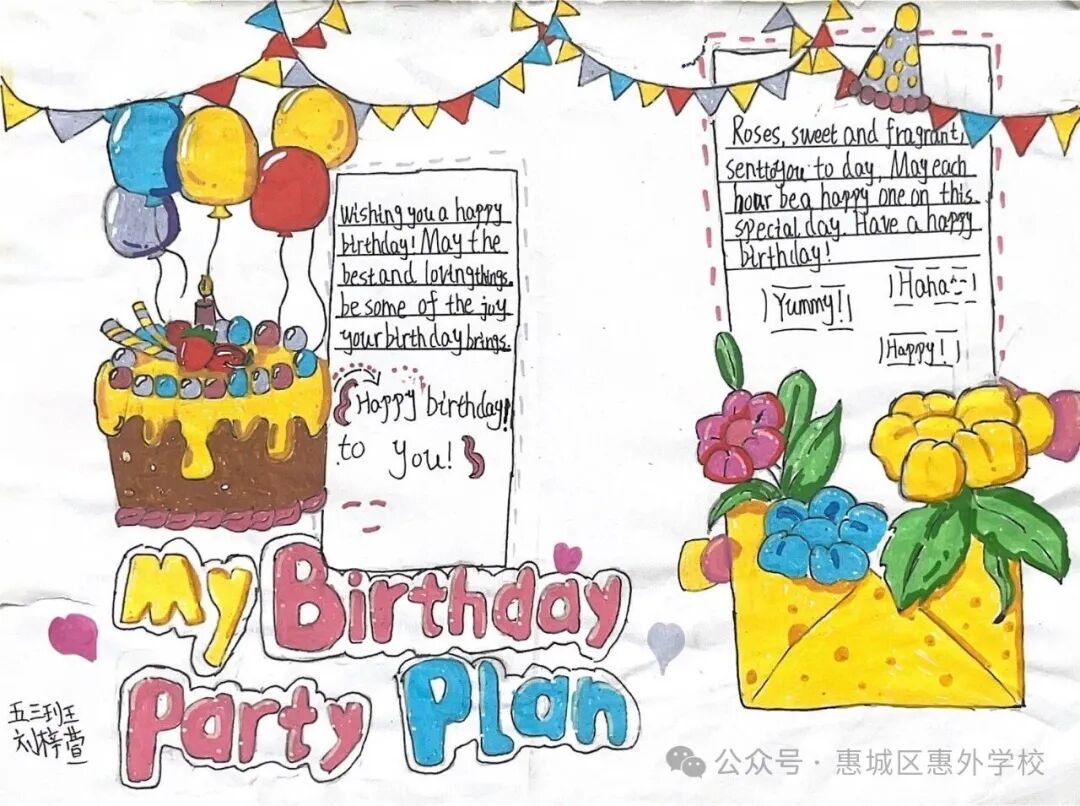 Wishing you a happy
birthday! May the
best and loving things.
be some of the joy
your birthday brings.
Happy birthday!
to you!
Roses, sweet and fragrant,
sent to you to day, May each
hour be a happy one on this
special day. Have a happy
birthday!
Yummy!
Haha^-^
Happy!
My Birthday
Party Plan
五三班王
刘梓萱
公众号·惠城区惠外学校